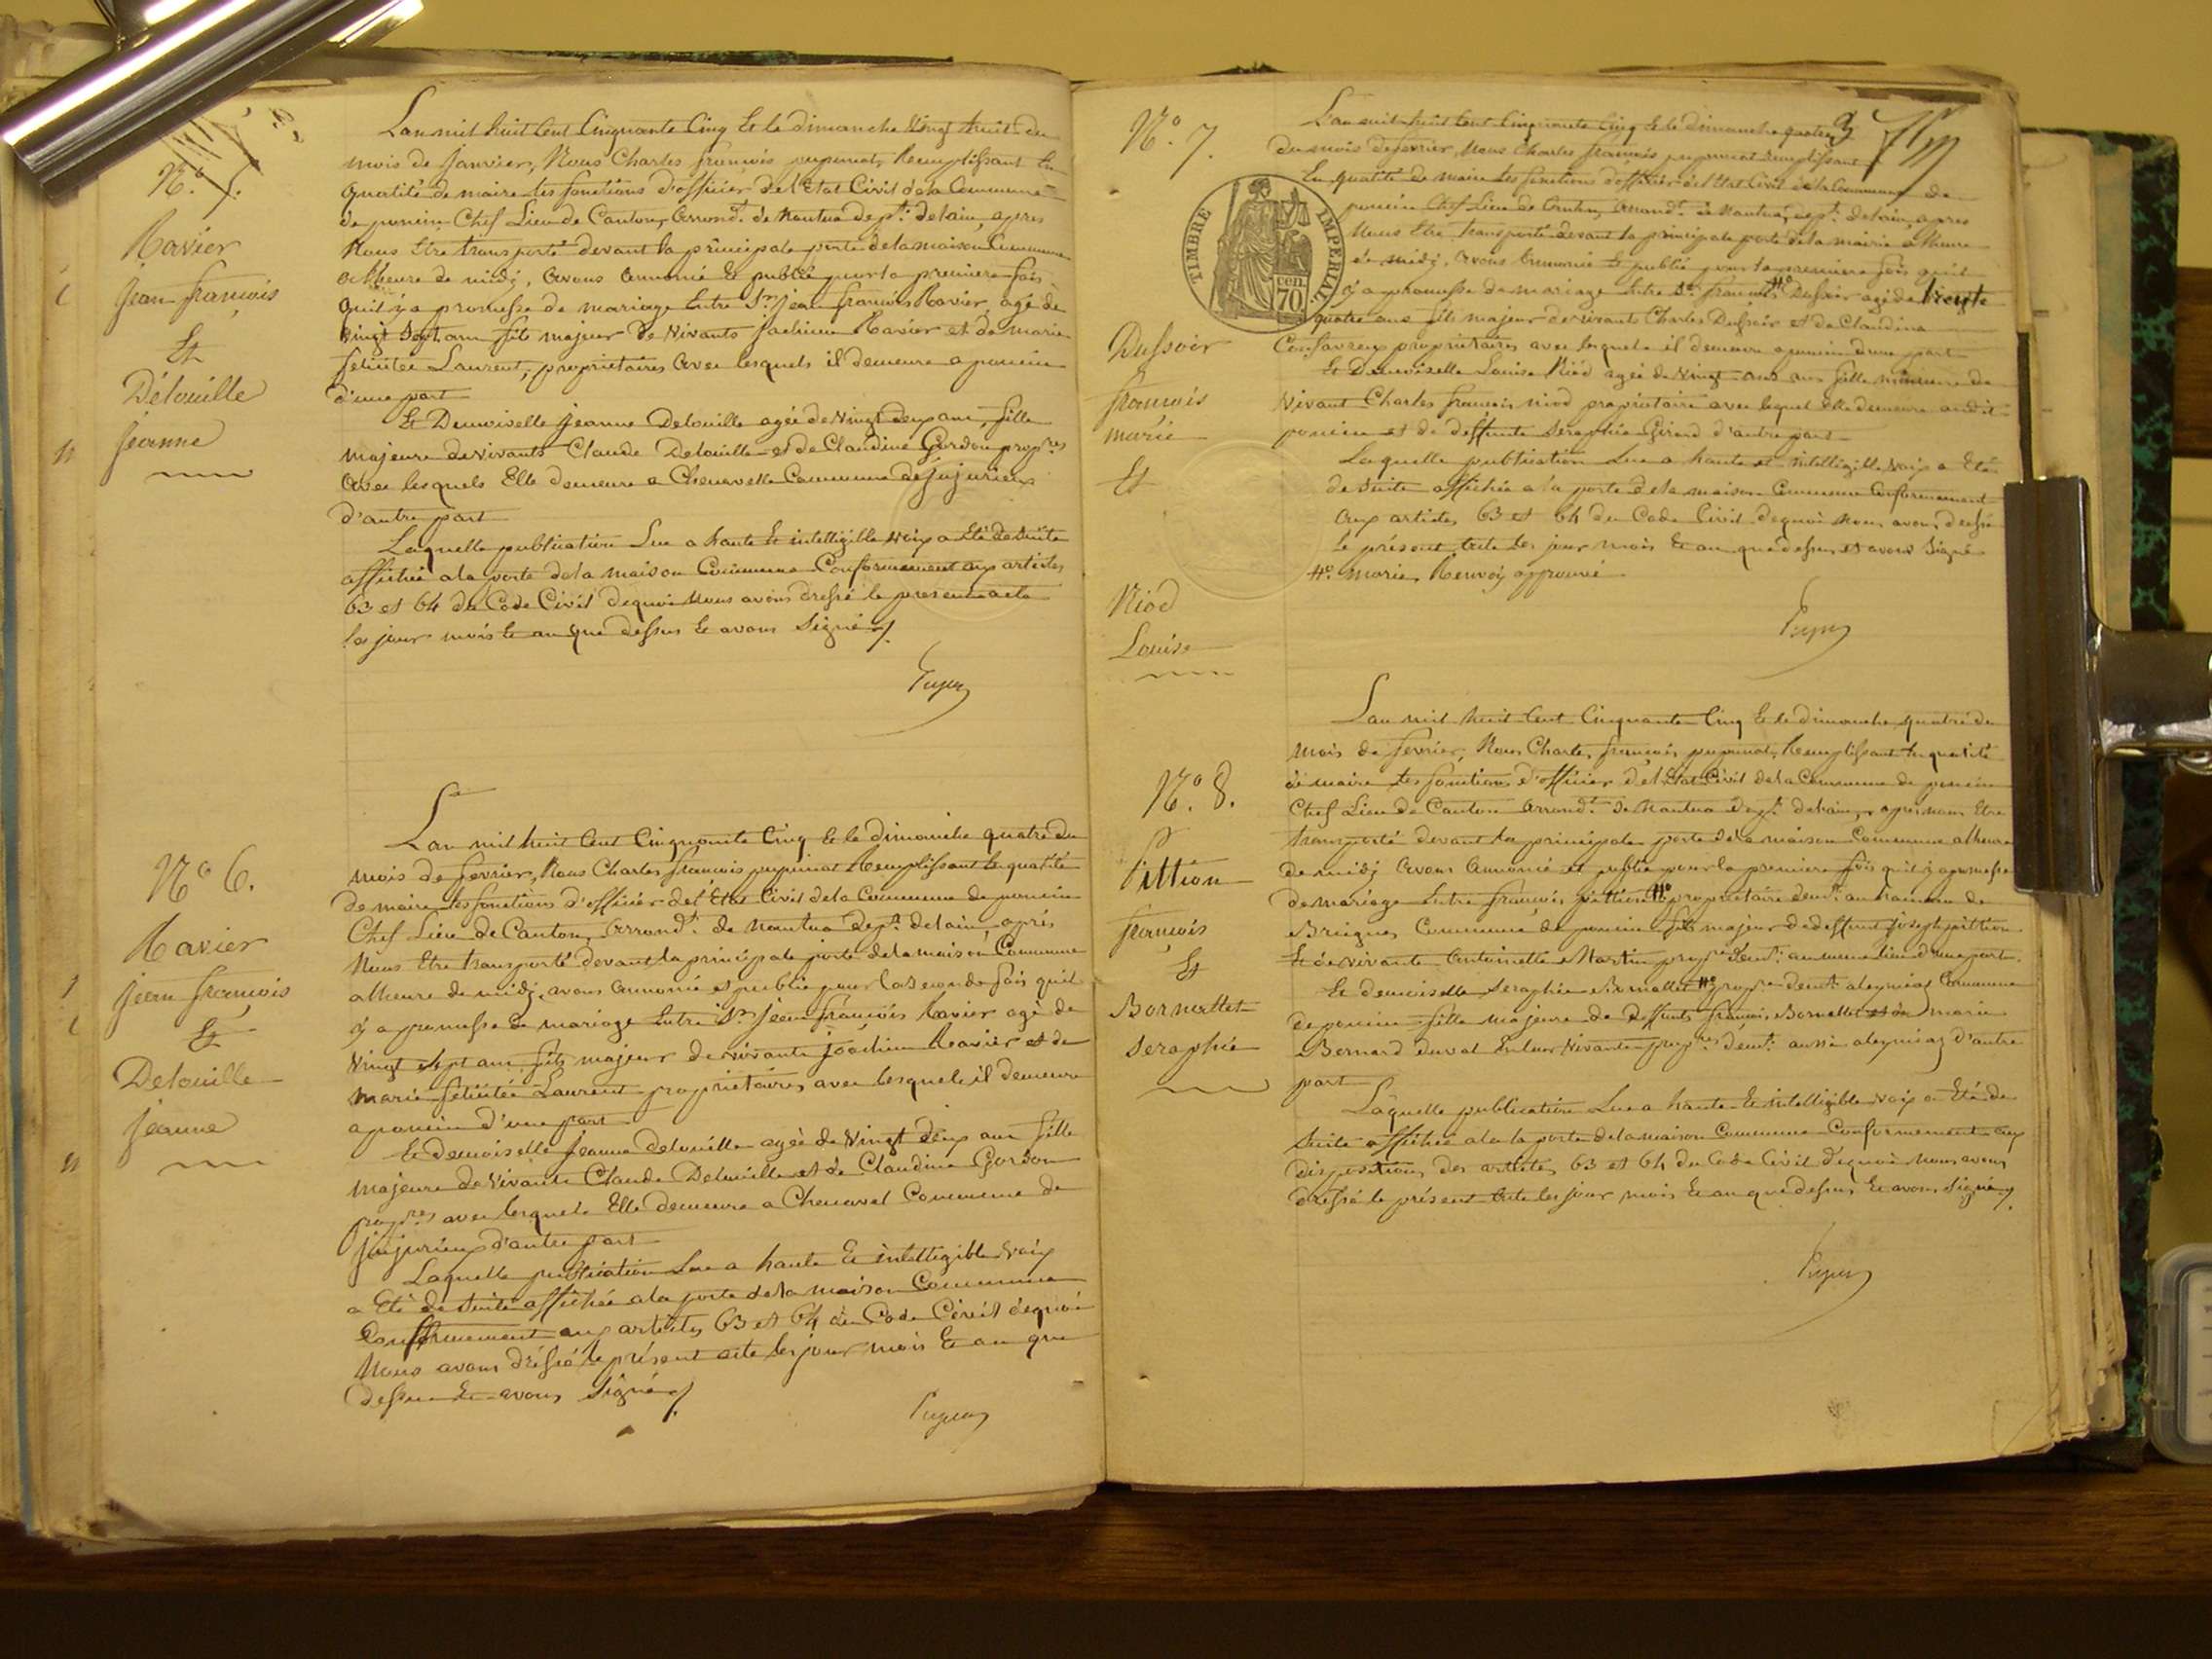 N.º 5.
Ravier
jean françois
Et
Délouille
jeanne
Lan mil huit Cent Cinquante Cinq Et le dimanche Vingt huit du
mois de Janvier, Nous Charles françois pupunat, Remplissant En
qualité de maire les fonctions d'officier de l'Etat Civil de la Commune
de poncin Chef Lieu de Canton, arrond.t de Nantua dep.t delain, apres
Nous Etre transporté devant la principale porte de la maison Commune
a lheure de midj, avons annoncé Et publié pour la premiere fois
quil y a promesse de mariage Entre S.r jean françois Ravier, agé de
vingt Sept ans fils majeur de Vivants joachim Ravier et de marie
felicitée Laurent, propriétaires avec lesquels il demeure a poncin
d'une part
Et Demoiselle jeanne Delouille agée de Vingt deux ans, fille
majeure de vivants Claude Delouille et de Claudine Gordon prop.res
avec lesquels Elle demeure a Chenavelle Commune de jujurieux
d'autre part
Laquelle publication Lue a haute Et intelligible voix a Eté de Suite
affichée a la porte de la maison Commune Conformement aux articles
63 et 64 du Code Civil dequoi Nous avons dressé le present acte
les jour mois Et an que dessus Et avons Signé
N.º 6.
Ravier
jean françois
Et
Delouille
jeanne
Lan mil huit Cent Cinquante Cinq Et le dimanche quatre du
mois de fevrier, Nous Charles françois pupunat Remplissant En qualité
de maire les fonctions d'officier de l'Etat Civil de la Commune de poncin
Chef Lieu de Canton, Arrond.t de Nantua dep.t delain, aprés
Nous Etre transporté devant la principale porte de la maison Commune
a lheure de midj, avons annoncé et publié pour la Seconde fois quil
y a promesse de mariage Entre S.r jean françois Ravier agé de
Vingt Sept ans, fils majeur de vivants joachim Ravier et de
marie felicitée Laurent propriétaires avec lesquels il demeure
a poncin d'une part
Et demoiselle jeanne delouille agée de Vingt deux ans fille
majeure de Vivants Claude Delouille et de Claudine Gordon
prop.res avec lesquels Elle demeure a Chenavel Commune de
jujurieux d'autre part
Laquelle publication Lue a haute Et intelligible voix
a Eté de Suite affichée a la porte de la maison Commune
Conformement aux articles 63 et 64 du Code Civil dequoi
Nous avons dréssé le présent acte les jour mois Et an que
dessus Et avons Signé
3
N.º 7.
TIMBRE IMPERIAL.
cen. 70
Dussoir
françois
marie
Et
Niod
Louise
L'an mil huit Cent Cinquante Cinq Et le dimanche quatre
du mois de fevrier, Nous Charles françois pupunat remplissant
En qualité de maire les fonctions d'officier de l'Etat Civil de la Commune de
poncin Chef Lieu de Canton, arrond.t de Nantua, dep.t delain, apres
Nous Etre transporté devant la principale porte de la mairie a lheure
de midj, avons annoncé Et publié pour la premiere fois quil
y a promesse de mariage Entre S.r françois #º Dussoir agé de trente
quatre ans fils majeur de vivant Charles Dussoir et de Claudine
propriétaires avec lesquels il demeure a poncin d'une part
Et Demoiselle Louise Niod agée de Vingt ans fille mineure de
vivant Charles françois niod propriétaire avec lequel Elle demeure audit
poncin et de deffunte Séraphie Girard d'autre part
Laquelle publication Lue a haute et intelligible voix a Eté
de Suite affichée a la porte de la maison Commune Conformement
aux articles 63 et 64 du Code Civil dequoi Nous avons dressé
le présent acte les jour mois Et an que dessus et avons Signé
#º marie, Renvoij approuvé
N.º 8.
Pittion
françois
Et
Bornallet
Seraphie
Lan mil huit Cent Cinquante Cinq Et le dimanche quatre du
mois de fevrier, Nous Charles françois pupunat, Remplissant En qualité
de maire les fonctions d'officier de l'Etat Civil de la Commune de poncin
Chef Lieu de Canton Arrond.t de Nantua dep.t delain, apres nous Etre
transporté devant la principale porte de la maison Commune a lheure
de midj avons annoncé et publié pour la premiere fois quil y a promesse
de mariage Entre françois pittion #º propriétaire dem.t au hameau de
Breignes Commune de poncin fils majeur de deffunt joseph pittion
Et de vivante Antoinette Martin prop.re dem.t au meme lieu d'une part.
Et demoiselle Seraphie Bornallet #º prop.re dem.t a leymiat Commune
de poncin fille majeure de deffunts françois Bornallet et de marie
Bernard duval prop.res dem.t aussi a leymiat d'autre
part
Laquelle publication Lue a haute Et intelligible voix a Eté de
Suite affichée a la la porte de la maison Commune Conformement aux
dispositions des articles 63 et 64 du Code Civil dequoi Nous avons
dréssé le présent acte les jour mois Et an que dessus Et avons Signé